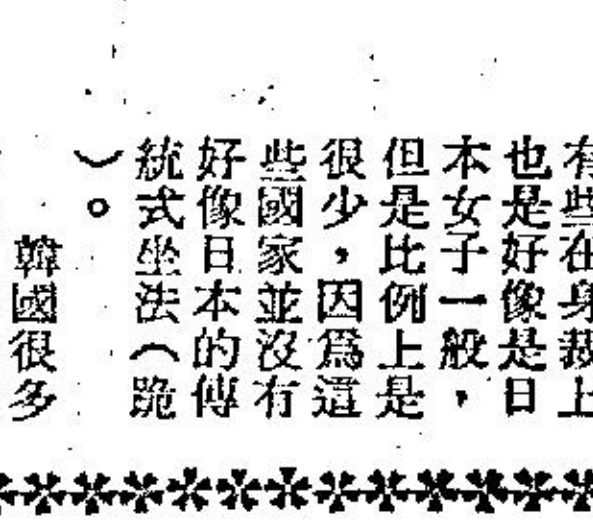 有些在身裁上
也是好像是日
本女子一般，
但是比例上是
很少，因爲這
些國家並沒有
好像日本的傳
統式坐法（跪
）。
韓國很多